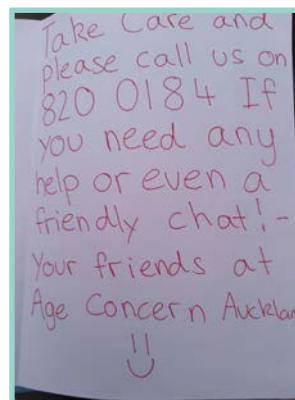 Take Care and
please call us on
820 0184 If
you need any
help or even a
friendly chat! -
Your friends at
Age Concern Aucklan